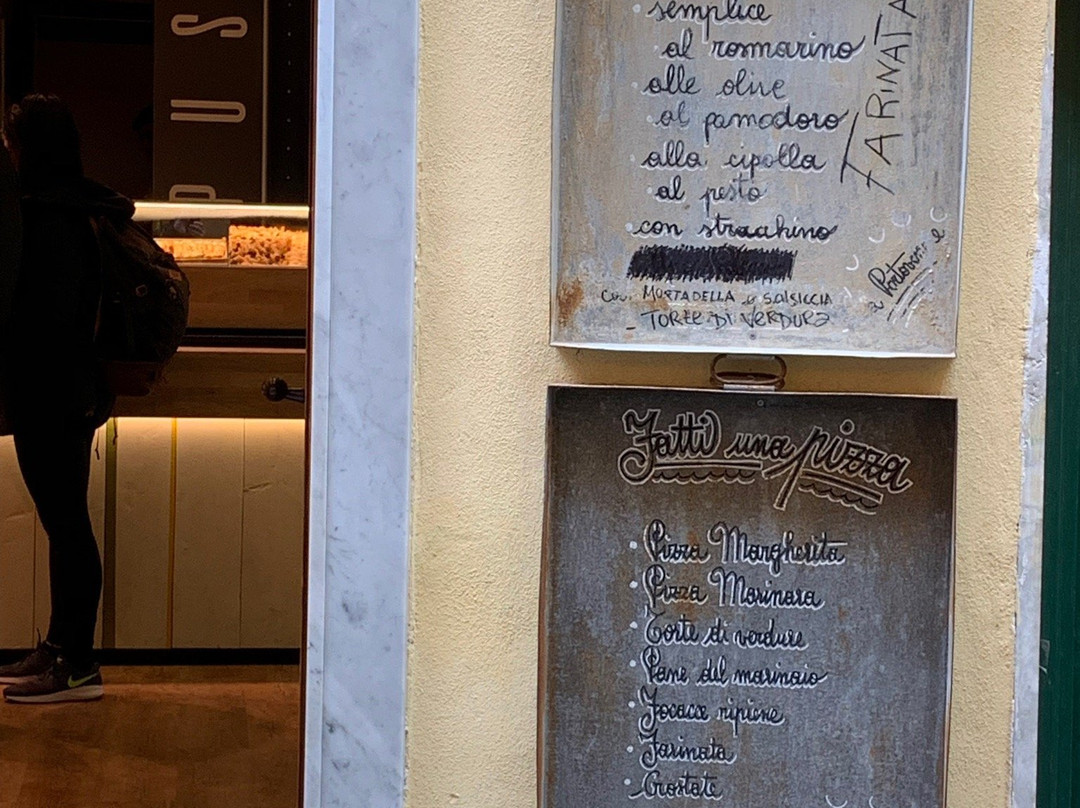 semplice
al rosmarino
alle olive
al pomodoro
alla cipolla
al pesto
con stracchino
con MORTADELLA o SALSICCIA
- TORTE DI VERDURA
FARINATA
a Portovenere
Fatti una pizza
Pizza Margherita
Pizza Marinara
Torte di verdure
Pane del marinaio
Focacce ripiene
Farinata
Crostate
US